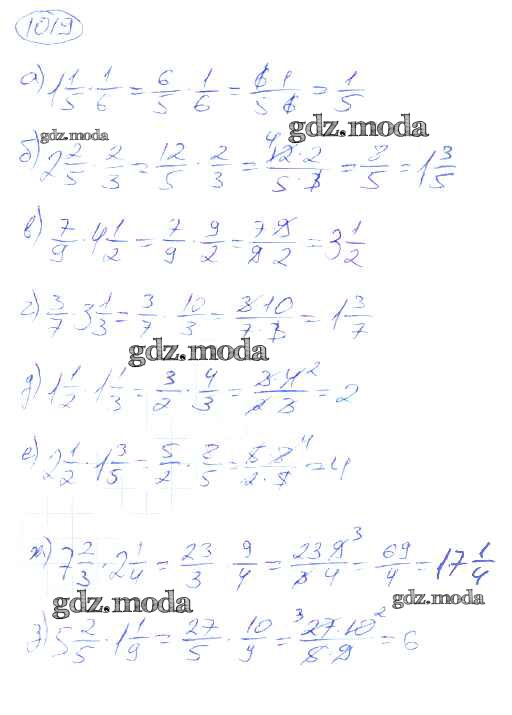 1019
а) 1 1/5 · 1/6 = 6/5 · 1/6 = 6 1/5 6 = 1/5
gdz.moda
gdz.moda
б) 2 2/5 · 2/3 = 12/5 · 2/3 = 4 12 · 2/5 · 3 = 8/5 = 1 3/5
в) 7/9 · 4 1/2 = 7/9 · 9/2 = 7 9/9 2 = 3 1/2
г) 3/7 · 3 1/3 = 3/7 · 10/3 = 3 10/7 · 3 = 1 3/7
gdz.moda
д) 1 1/2 · 1 1/3 = 3/2 · 4/3 = 3 · 4 2/2 3 = 2
е) 2 1/2 · 1 3/5 = 5/2 · 8/5 = 5 · 8 4/2 · 5 = 4
ж) 7 2/3 · 2 1/4 = 23/3 · 9/4 = 23 9 3/3 4 = 69/4 = 17 1/4
gdz.moda
gdz.moda
з) 5 2/5 · 1 1/9 = 27/5 · 10/9 = 3 27 · 10 2/5 · 9 = 6